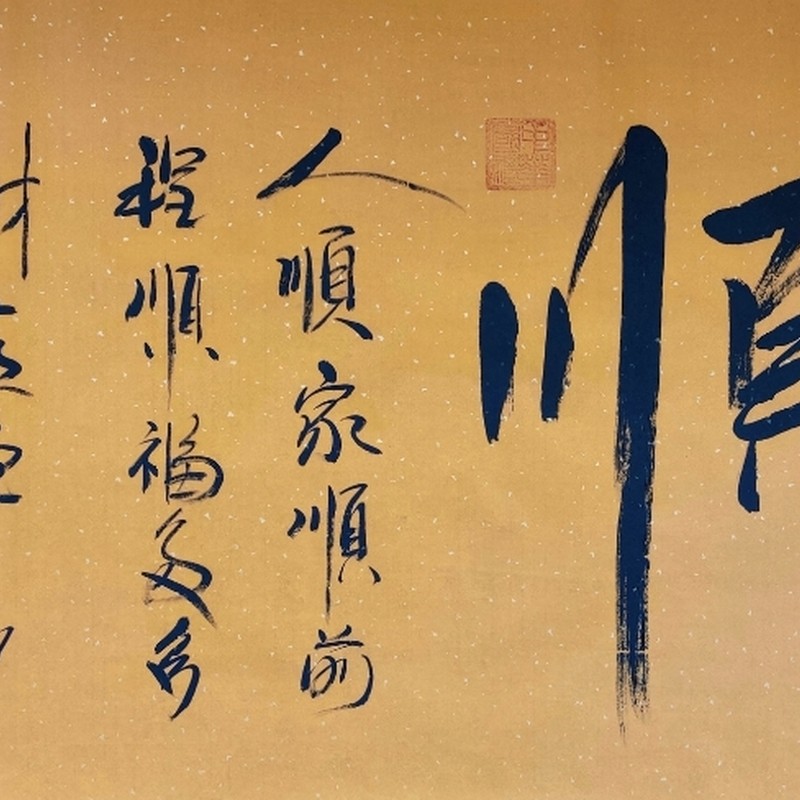 順
人順家順前
程順福多多